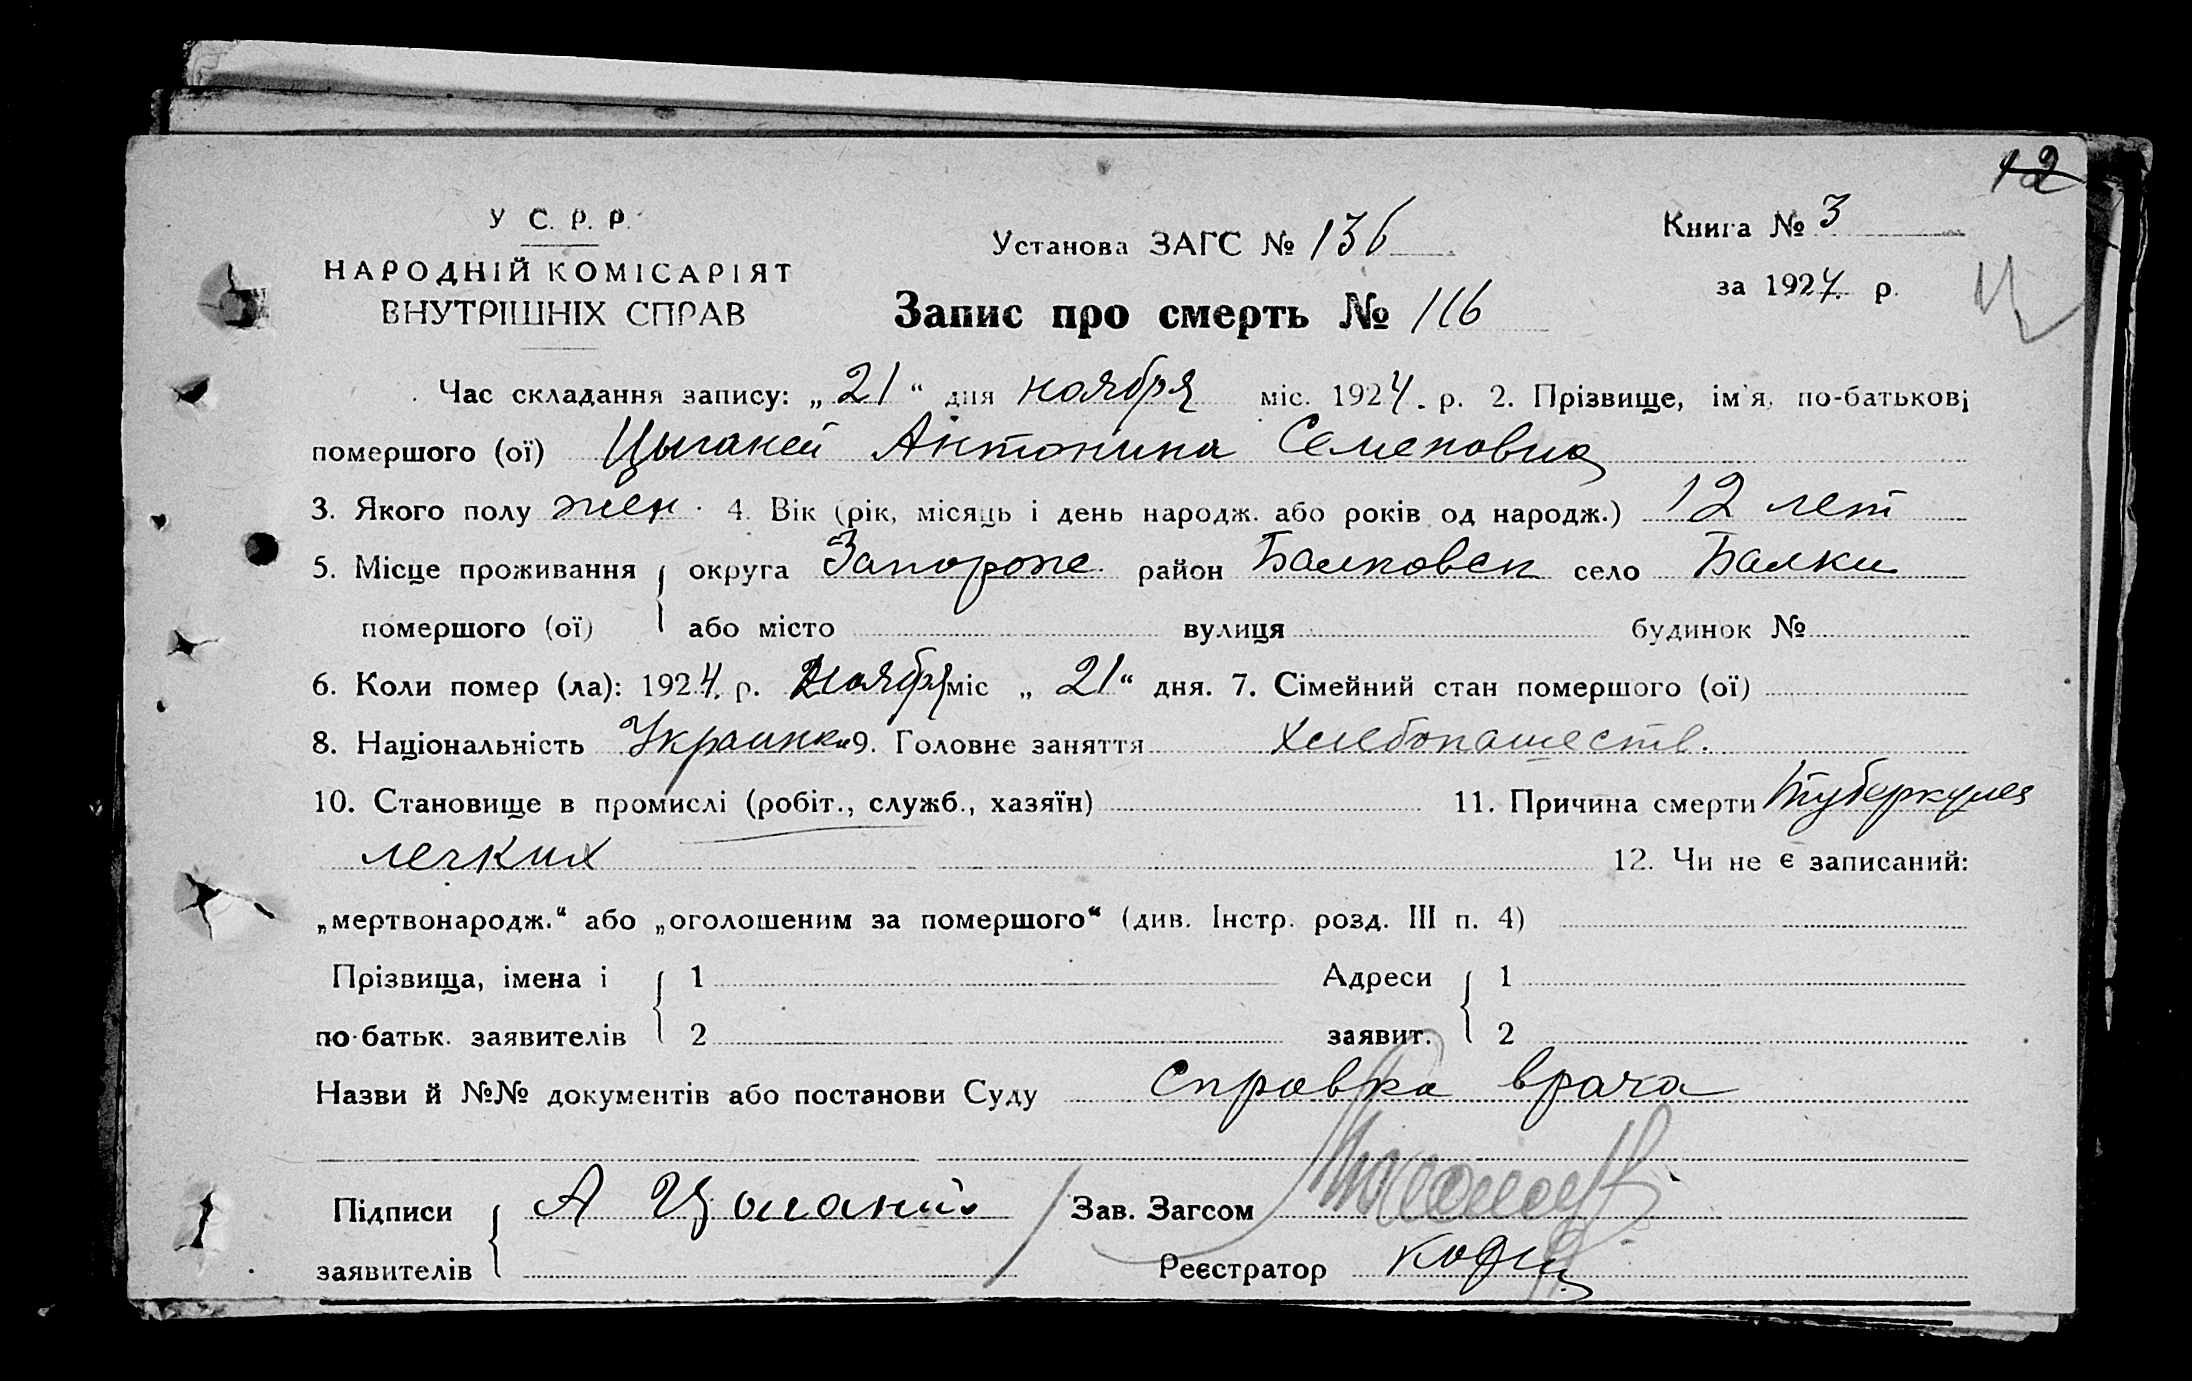 12
У С. Р. Р.
НАРОДНІЙ КОМІСАРІЯТ
ВНУТРІШНІХ СПРАВ
Установа ЗАГС № 136
Книга № 3
за 1924 р.
Запис про смерть № 116
Час складання запису: „21“ дня ноября міс. 1924. р. 2. Прізвище, ім'я, по-батькові
помершого (ої) Цыганей Антонина Семеновна
3. Якого полу жен. 4. Вік (рік, місяць і день народж. або років од народж.) 12 лет
5. Місце проживання округа Запорож. район Балковск село Балки
помершого (ої) або місто вулиця будинок №
6. Коли помер (ла): 1924. р. Ноября міс „21“ дня. 7. Сімейний стан помершого (ої)
8. Національність Украинка 9. Головне заняття Хлебопашеств.
10. Становище в промислі (робіт., служб., хазяїн) 11. Причина смерти Туберкулез
легких 12. Чи не є записаний:
„мертвонародж.“ або „оголошеним за помершого“ (див. Інстр. розд. III п. 4)
Прізвища, імена і 1 Адреси 1
по-батьк. заявителів 2 заявит. 2
Назви й №№ документів або постанови Суду справка врача
Підписи А Цыганий Зав. Загсом
заявителів Реєстратор